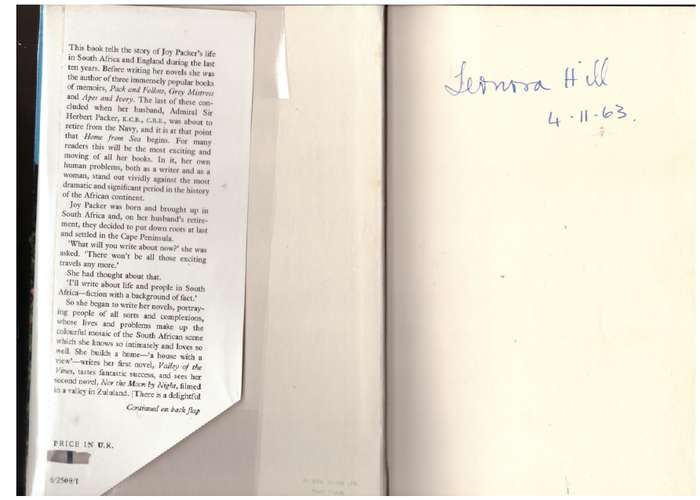 This book tells the story of Joy Packer's life
in South Africa and England during the last
ten years. Before writing her novels she was
the author of three immensely popular books
of memoirs, Pack and Follow, Grey Mistress
and Apes and Ivory. The last of these con-
cluded when her husband, Admiral Sir
Herbert Packer, K.C.B., C.B.E., was about to
retire from the Navy, and it is at that point
that Home from Sea begins. For many
readers this will be the most exciting and
moving of all her books. In it, her own
human problems, both as a writer and as a
woman, stand out vividly against the most
dramatic and significant period in the history
of the African continent.
Joy Packer was born and brought up in
South Africa and, on her husband's retire-
ment, they decided to put down roots at last
and settled in the Cape Peninsula.
'What will you write about now?' she was
asked. 'There won't be all those exciting
travels any more.'
She had thought about that.
'I'll write about life and people in South
Africa—fiction with a background of fact.'
So she began to write her novels, portray-
ing people of all sorts and complexions,
whose lives and problems make up the
colourful mosaic of the South African scene
which she knows so intimately and loves so
well. She builds a home—'a house with a
view'—writes her first novel, Valley of the
Vines, tastes fantastic success, and sees her
second novel, Nor the Moon by Night, filmed
in a valley in Zululand. [There is a delightful
Continued on back flap
PRICE IN U.K.
6/2509/1
Leonora Hill
4-11-63.